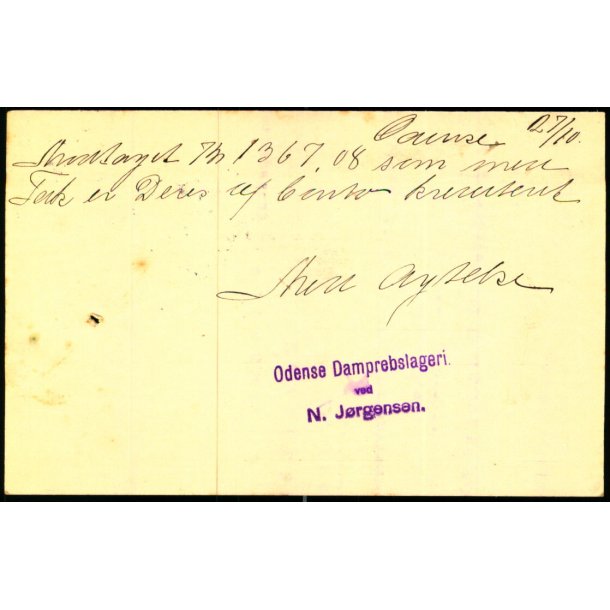 Odense 27/10.
Modtaget Kr 1367,08 som med
Tak er Deres a/ Conto krediteret
Med Agtelse
Odense Damprebslageri.
ved
N. Jørgensen.